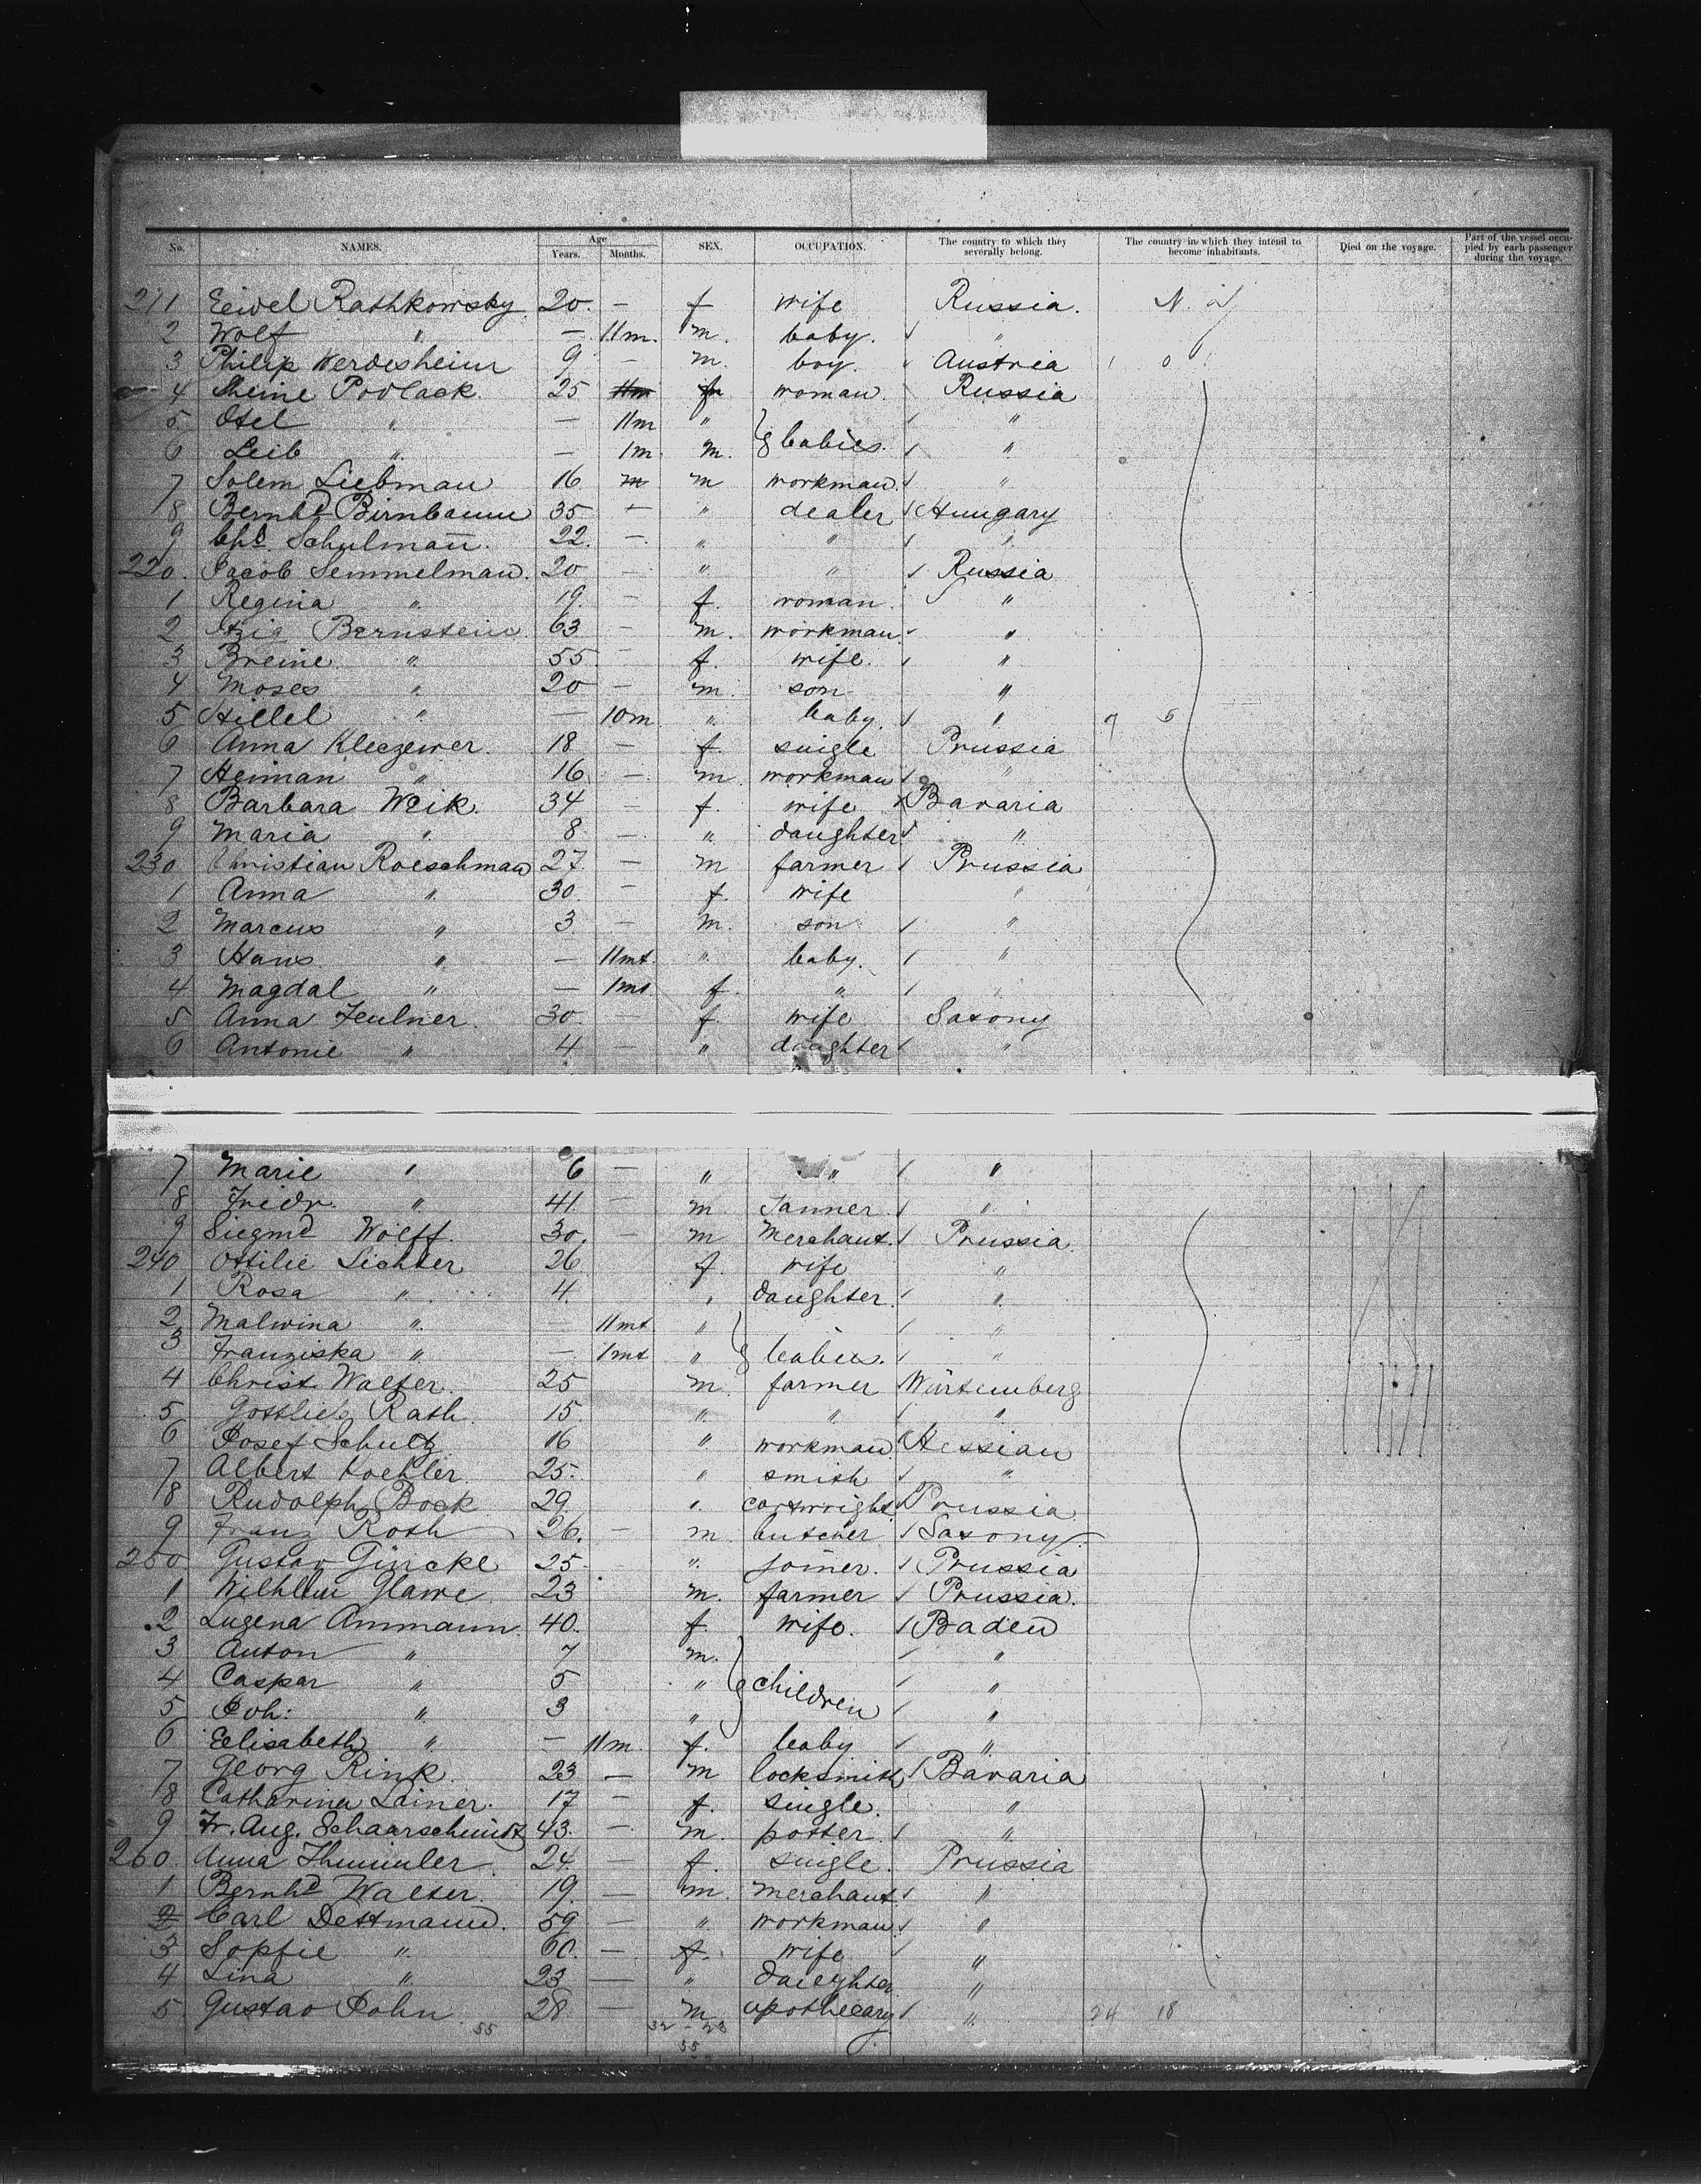 No. NAMES. Age Years. Months. SEX. OCCUPATION. The country to which they severally belong. The country in which they intend to become inhabitants. Died on the voyage. Part of the vessel occupied by each passenger during the voyage.
211 Eeidel Rathkowsky 20 — f wife Russia. N.
2 Wolf " — 11m. m. baby. "
3 Philip Werdesheim 9 — m. boy. " Austria
4 Scheine Podlack. 25 f woman. Russia
5 Otel " — 11m " } babies. "
6 Leib " — 1m m. "
7 Solem Liebman 16 m workman. "
8 Bernhd Birnbaum 35 — " dealer Hungary
9 Chs. Schulmann. 22. — " " "
220. Jacob Semmelman. 20 — " " Russia
1 Regina " 19. — f. woman. "
2 Bernstein 63 — m. workman. "
3 Breine " 55 — f. wife. "
4 Moses " 20 — m. son "
5 Hillel " — 10m " baby. "
6 Anna Kleczewer. 18 — f single Prussia
7 Heiman " 16 — m workman "
8 Barbara Weik. 34 — f. wife Bavaria
9 Maria " 8 — " daughter "
230 Christian Roeschman 27 — m farmer Prussia
1 Anna " 30. — f. wife "
2 Marcus " 3 — m. son "
3 Hans " — 11mt. " baby. "
4 Magdal " — 1mt. f. " "
5 Anna Zeulner. 30. — f. wife Saxony
6 Antonie " 4 — " daughter "
7 Marie " 6 — " " "
8 Fridr. " 41. — m. Tanner. "
9 Siegmd Wolff. 30. — m Merchant. Prussia.
240 Ottilie Lichter 26 f. wife "
1 Rosa " 4. " daughter. "
2 Malwina " — 11mt " } babies. "
3 Franziska " — 1mt " "
4 Christ. Walter. 25 m. farmer Würtemberg
5 Gottlieb Rath. 15. " " "
6 Josef Schultz 16 " workman. Hessian
7 Albert Koehler. 25. " smith "
8 Rudolph Bock 29 " cartwright Prussia.
9 Franz Roth 26. — m. butcher Saxony.
250 Gustav Güncke 25 " joiner. Prussia
1 Wilhelm Glawe 23 m. farmer Prussia.
2 Eugena Ammann. 40. f wife. Baden
3 Anton " 7 m. } children "
4 Caspar " 5 " "
5 Joh: " 3 " "
6 Eelisabeth " — 11m. f. baby "
7 Georg Rink. 23 — m locksmith Bavaria
8 Catharina Lainer. 17 — f. single. "
9 Fr. Aug. Schaarschmidt 43. — m. potter. "
260. Anna Thümmler. 24. — f. single. Prussia
1 Bernhd Walter. 19. — m. merchant "
2 Carl Dettmann. 59 — " workman "
3 Sopfie " 60. — f. wife "
4 Lina " 23 — " daughter "
5 Gustav John 28. — m. apothecary " 24 18
55 32 - 23
55